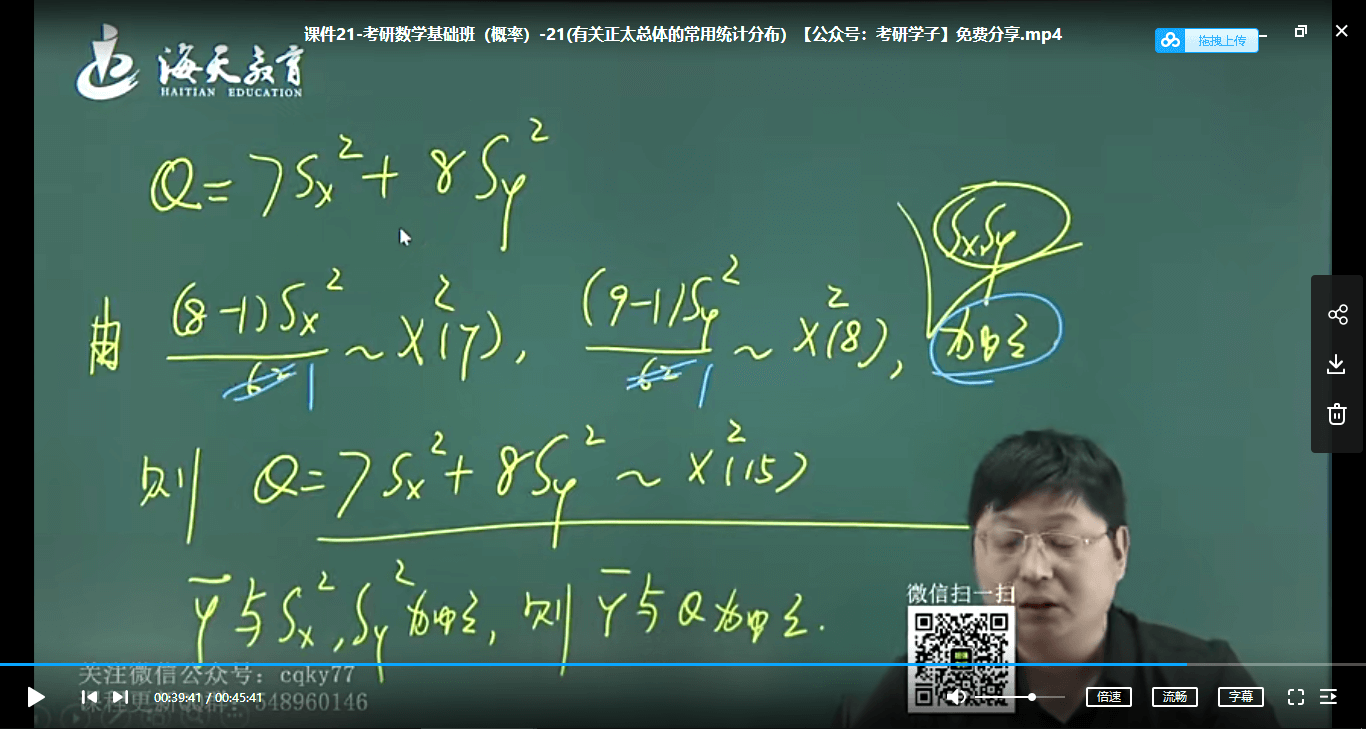 课件21-考研数学基础班（概率）-21(有关正太总体的常用统计分布) 【公众号：考研学子】免费分享.mp4
拖拽上传
海天教育
HAITIAN EDUCATION
Q = 7Sx² + 8Sy²
Sx,Sy
由 (8-1)Sx²/σ² 1 ~ χ²(7), (9-1)Sy²/σ² 1 ~ χ²(8), 为独立
则 Q = 7Sx² + 8Sy² ~ χ²(15)
Ȳ与Sx²,Sy²为独立, 则Ȳ与Q为独立.
微信扫一扫
关注微信公众号：cqky77
548960146
00:39:41 / 00:45:41
倍速
流畅
字幕